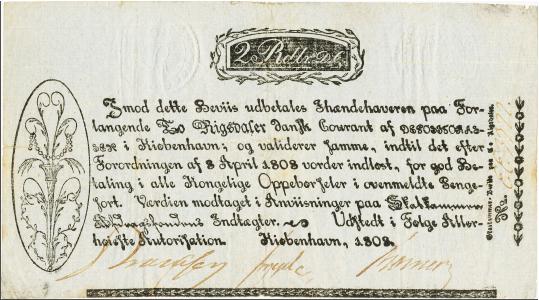 2 Rdlr. D. C.
Imod dette Beviis udbetales Ihændehaveren paa For-
langende To Rigsdaler Dansk Courant af DEPOSITOCAS-
SEN i Kiøbenhavn; og validerer samme, indtil det efter
Forordningen af 8 April 1808 vorder indløst, for god Be-
taling i alle Kongelige Oppebørseler i ovenmeldte Penge-
sort. Værdien modtaget i Anviisninger paa Skatkammer-
Indtægter. Udstedt i Følge Aller-
høieste Autorisation. Kiøbenhavn, 1808.
No.